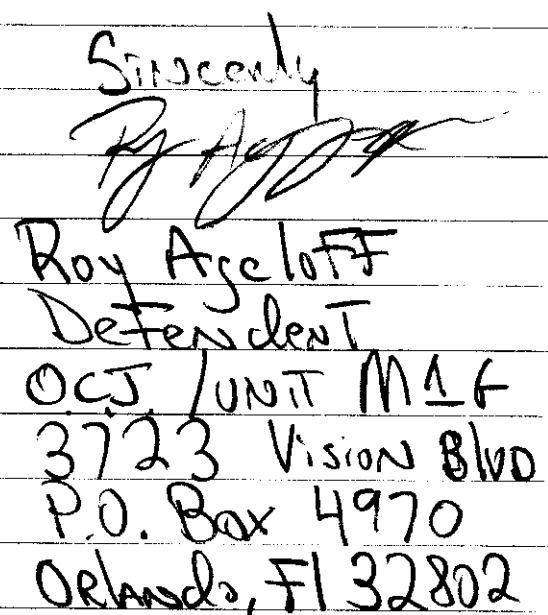 Sincerly
Roy Ageloff
Defendent
O.C.J. / UNIT M1F
3723 Vision Blvd
P.O. Box 4970
Orlando, Fl 32802